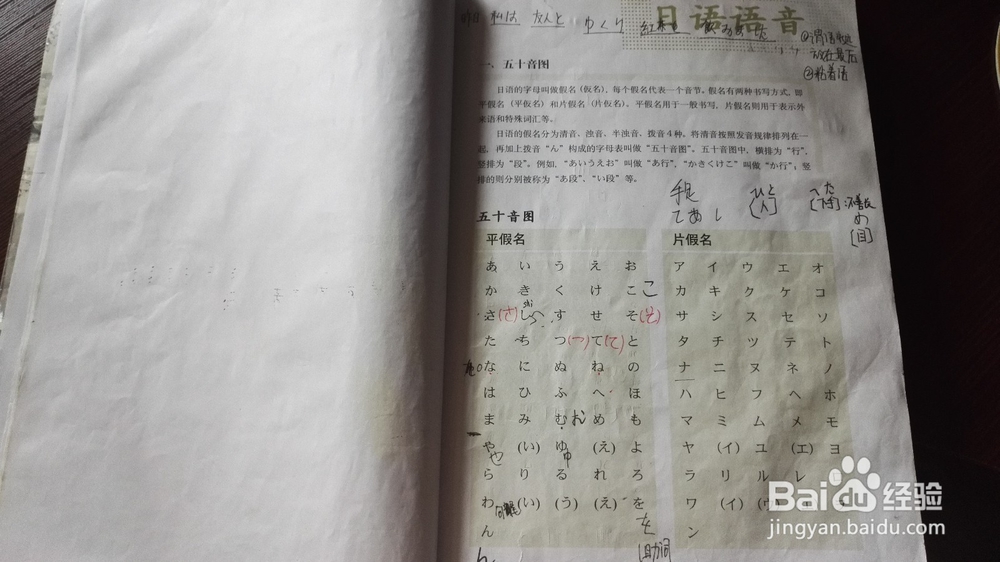 昨日 私は 友人と ゆくり
日语语音
一、五十音图
②粘着语
日语的字母叫做假名(仮名)，每个假名代表一个音节。假名有两种书写方式，即
平假名（平仮名）和片假名（片仮名）。平假名用于一般书写，片假名则用于表示外
来语和特殊词汇等。
日语的假名分为清音、浊音、半浊音、拨音4种。将清音按照发音规律排列在一
起，再加上拨音“ん”构成的字母表叫做“五十音图”。五十音图中，横排为“行”，
竖排为“段”。例如，“あいうえお”叫做“あ行”，“かきくけこ”叫做“か行”；竖
排的则分别被称为“あ段”、“い段”等。
手足 ひと へた
てあし [人] [下手]
め
[目]
五十音图
平假名 片假名
あ い う え お ア イ ウ エ オ
か き く け こ こ カ キ ク ケ コ
さ (さ) し す せ そ (そ) サ シ ス セ ソ
た ち つ (つ) て (て) と タ チ ツ テ ト
な に ぬ ね の ナ ニ ヌ ネ ノ
は ひ ふ へ ほ ハ ヒ フ ヘ ホ
ま み む め も マ ミ ム メ モ
や (い) ゆ (え) よ ヤ (イ) ユ (エ) ヨ
や ゆ
ら り る れ ろ ラ リ ル レ
わ (い) (う) (え) を ワ (イ)
ん を ン
助词
Baidu经验
jingyan.baidu.com